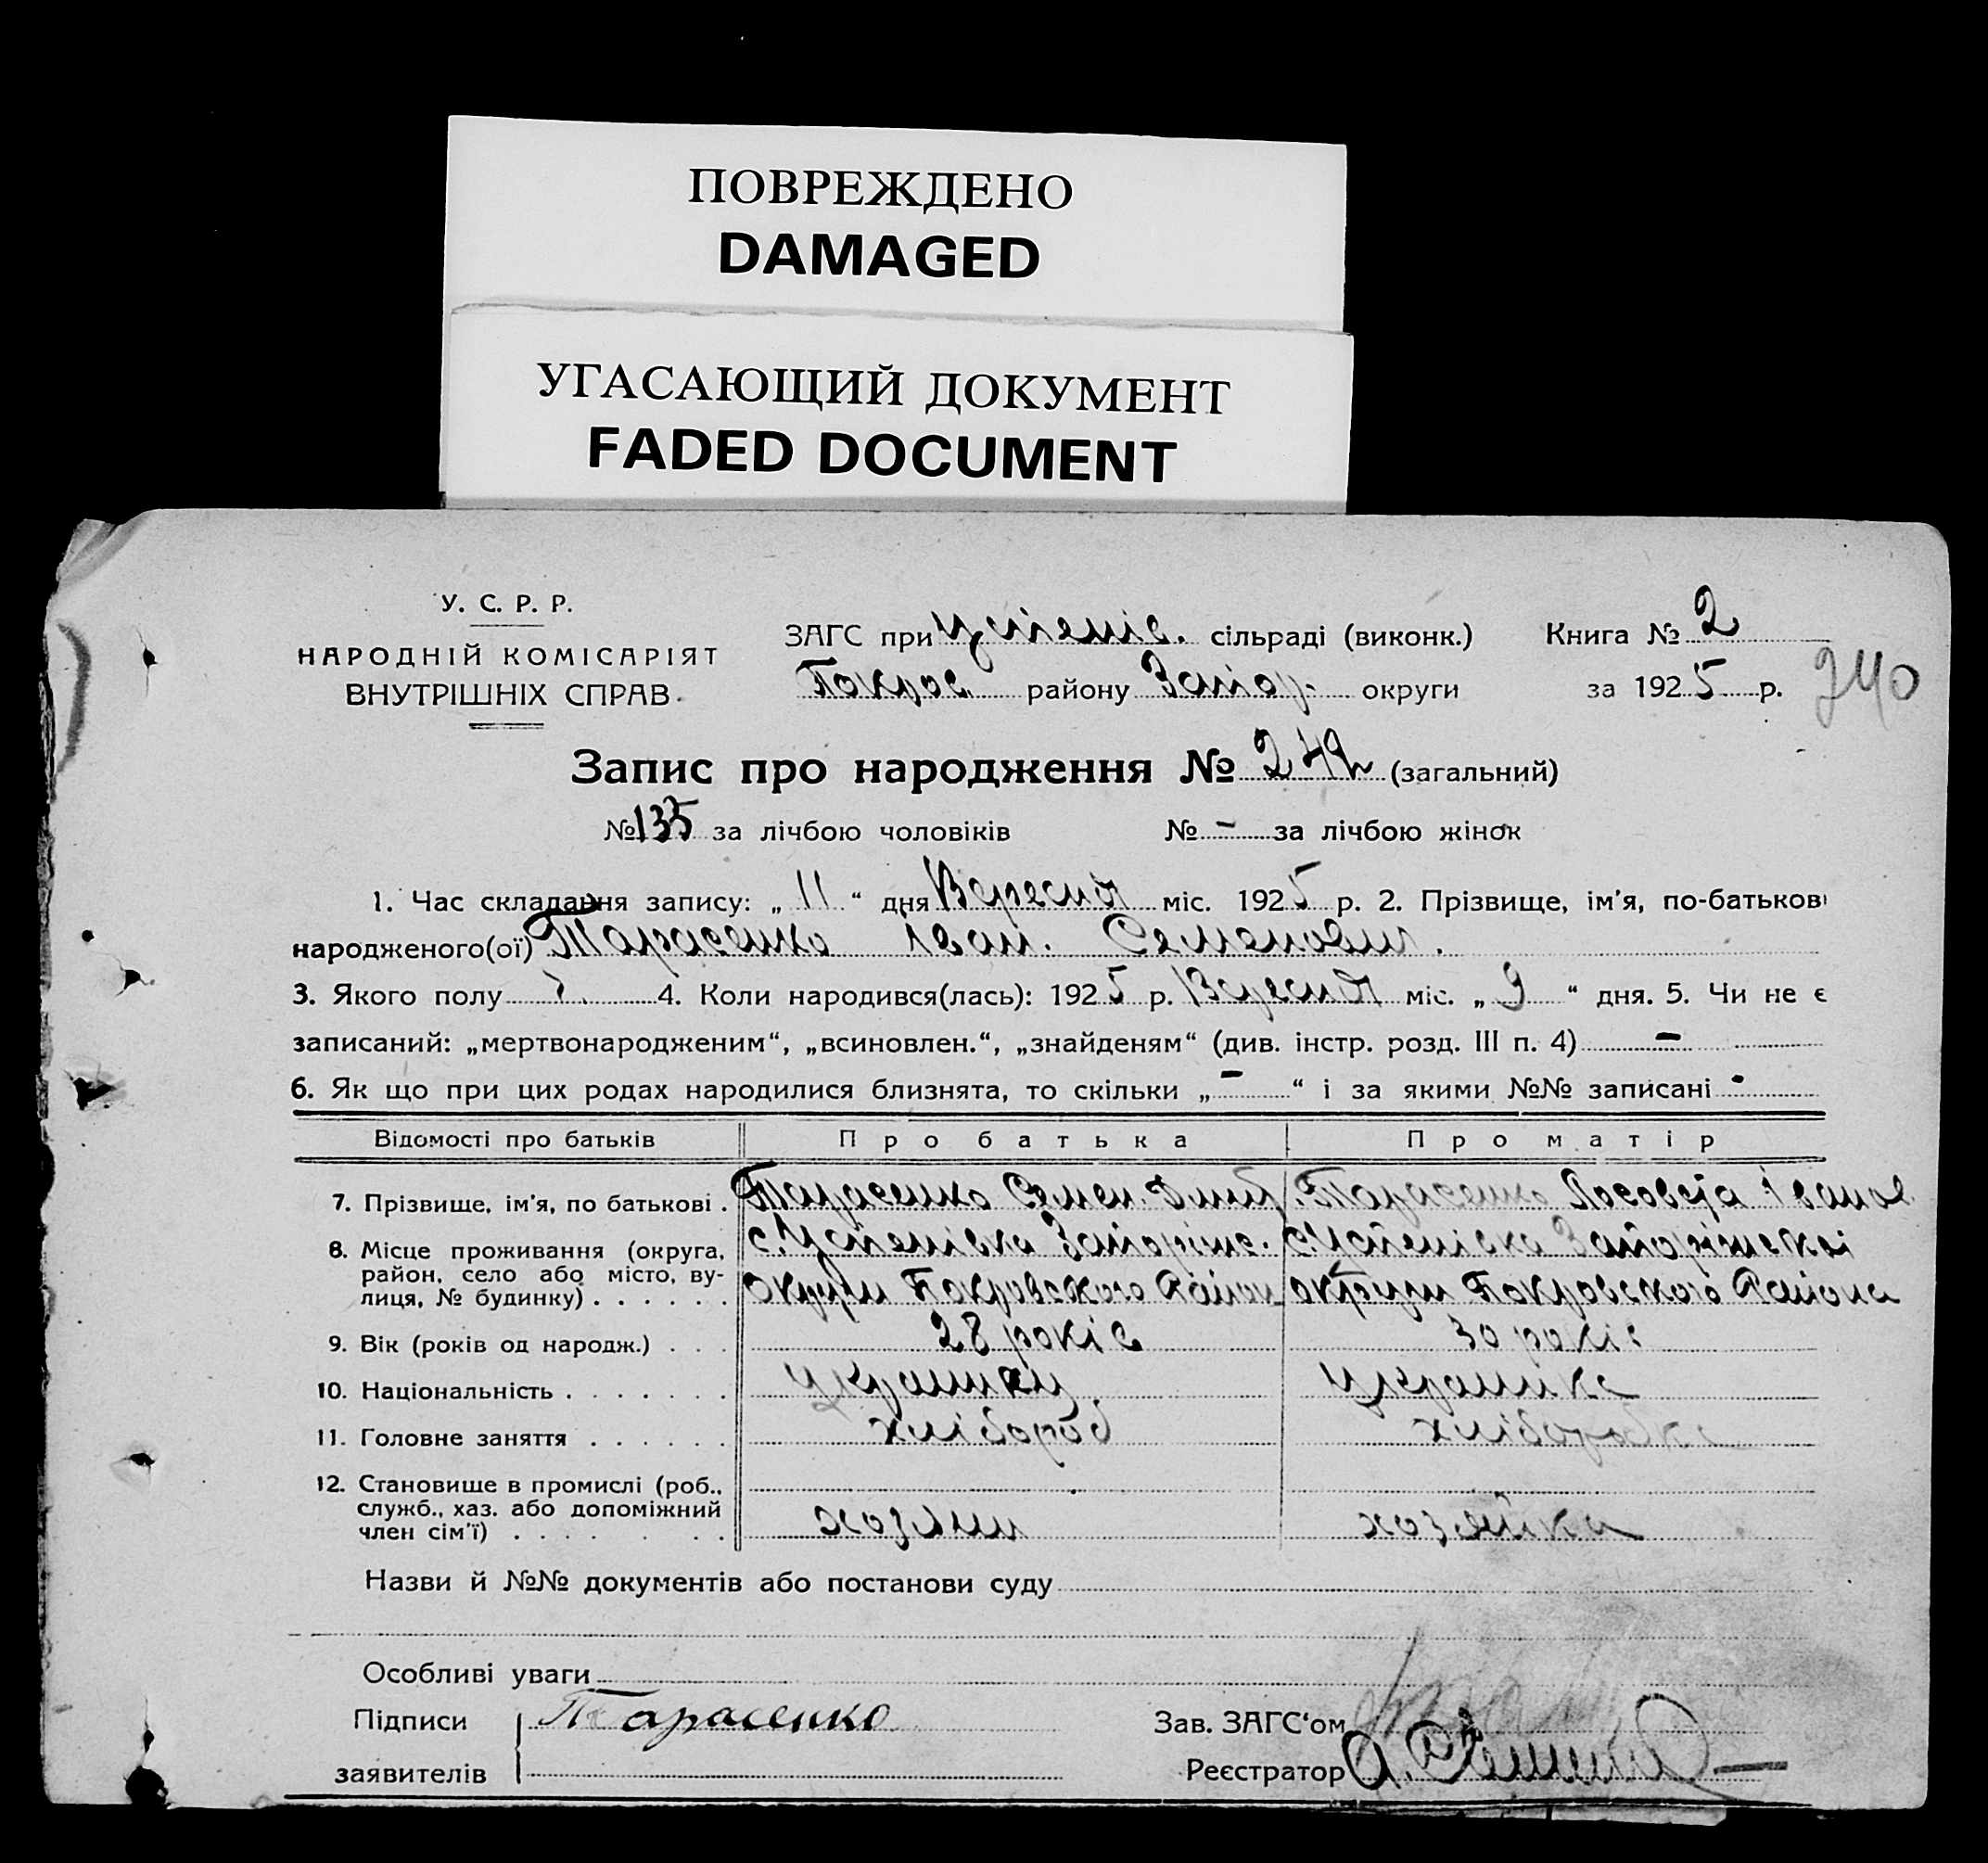 ПОВРЕЖДЕНО
DAMAGED
УГАСАЮЩИЙ ДОКУМЕНТ
FADED DOCUMENT
У. С. Р. Р.
НАРОДНІЙ КОМІСАРІЯТ
ВНУТРІШНІХ СПРАВ.
ЗАГС при Успенів. сільраді (виконк.)
Покров. району Запор. округи
Книга № 2
за 1925 р.
240
Запис про народження № 242 (загальний)
№ 135 за лічбою чоловіків № - за лічбою жінок
1. Час складання запису: „ 11 “ дня Вересня міс. 1925 р. 2. Прізвище, ім'я, по-батькові
народженого(ої) Тарасенко Іван. Семенович.
3. Якого полу 4. Коли народився(лась): 1925 р. Вересня міс. „ 9 “ дня. 5. Чи не є
записаний: „мертвонародженим“, „всиновлен.“, „знайденям“ (див. інстр. розд. III п. 4) -
6. Як що при цих родах народилися близнята, то скільки „ - “ і за якими №№ записані -
Відомості про батьків Про батька Про матір
7. Прізвище, ім'я, по батькові . Тарасенко Семен. Дмит. Тарасенко Іванов
8. Місце проживання (округа, район, село або місто, вулиця, № будинку) . . . . . .
с. Успенівка Запоріжс. с. Успенівка Запоріжської
округи Покровского Район округи Покровского Района
9. Вік (років од народж.) . . . 28 років 30 років
10. Національність . . . . . . . українец українка
11. Головне заняття . . . . . . хлібороб хліборобка
12. Становище в промислі (роб., служб., хаз. або допоміжний член сім'ї) . . . .
хозяин хозяйка
Назви й №№ документів або постанови суду
Особливі уваги
Підписи заявителів Тарасенко
Зав. ЗАГС'ом
Реєстратор А.